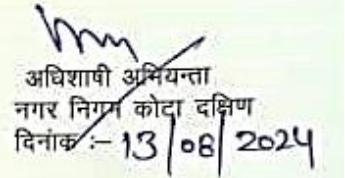 अधिशाषी अभियन्ता
नगर निगम कोटा दक्षिण
दिनांक :– 13/08/2024